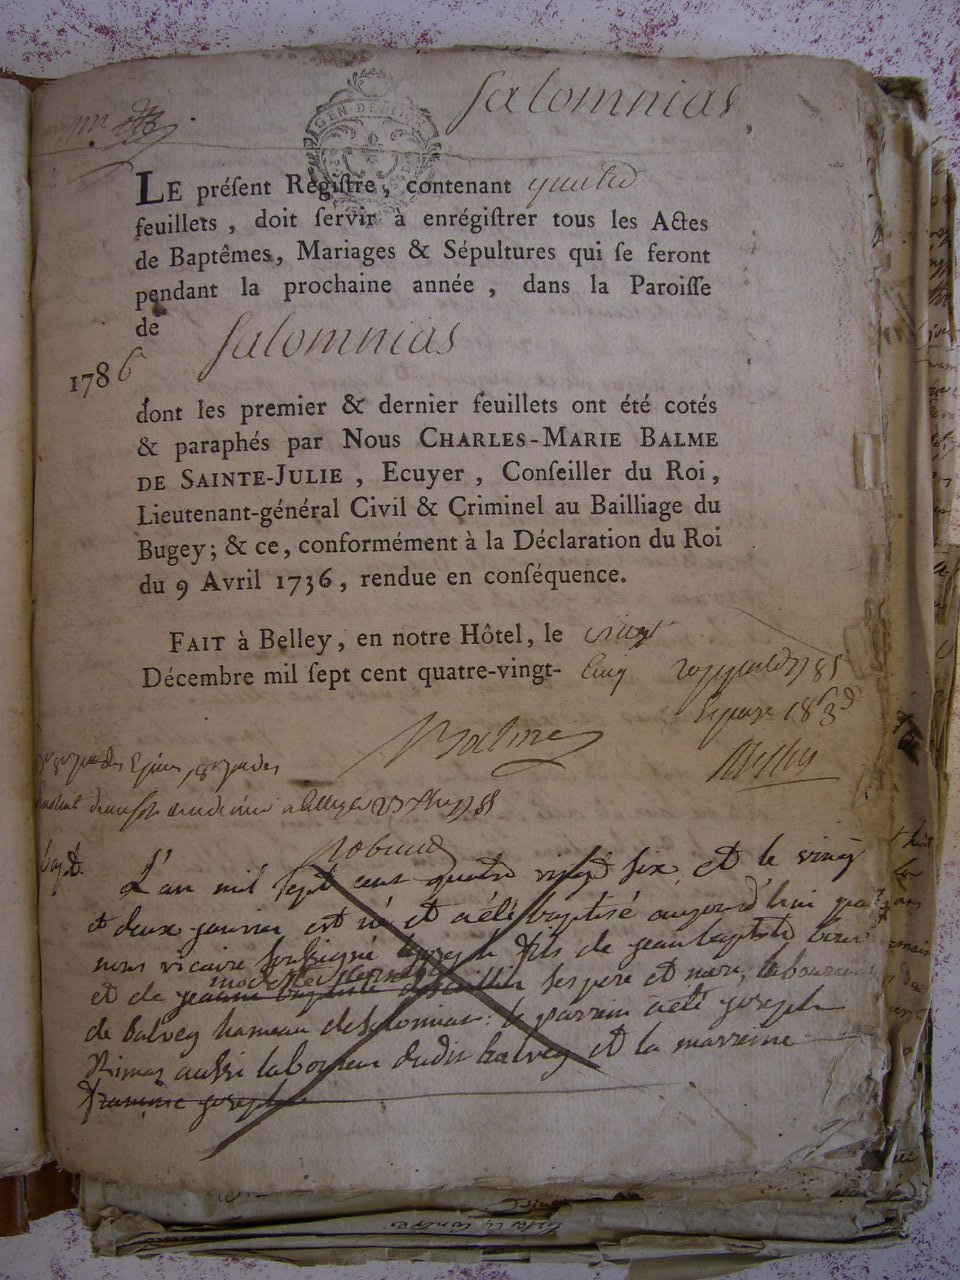 Salomnias
GEN. DE
LE préſent Regiſtre, contenant quatre
feuillets, doit ſervir à enrégiſtrer tous les Actes
de Baptêmes, Mariages & Sépultures qui ſe feront
pendant la prochaine année, dans la Paroiſſe
de Salomnias
1786
dont les premier & dernier feuillets ont été cotés
& paraphés par Nous CHARLES-MARIE BALME
DE SAINTE-JULIE, Ecuyer, Conſeiller du Roi,
Lieutenant-général Civil & Criminel au Bailliage du
Bugey; & ce, conformément à la Déclaration du Roi
du 9 Avril 1736, rendue en conſéquence.
FAIT à Belley, en notre Hôtel, le vingt
Décembre mil ſept cent quatre-vingt- Cinq
Balme
L'an mil sept cent quatre vingt six et le vingt
et deux janvier est né et a été baptisé aujourd'hui par
nous vicaire soussigné joseph fils de jean baptiste
et de jeanne baptiste ses pere et mere, laboureurs
de balvey hameau de : le parrain a été joseph
aussi laboureur dudit balvey et la marreine
joseph